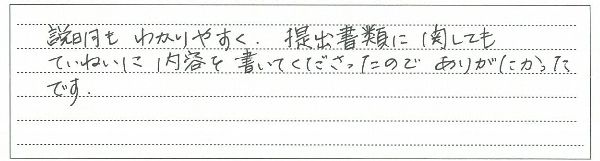 説明も わかりやすく. 提出書類に 関しても
ていねいに 内容を 書いてくださったので ありがたかった
です.